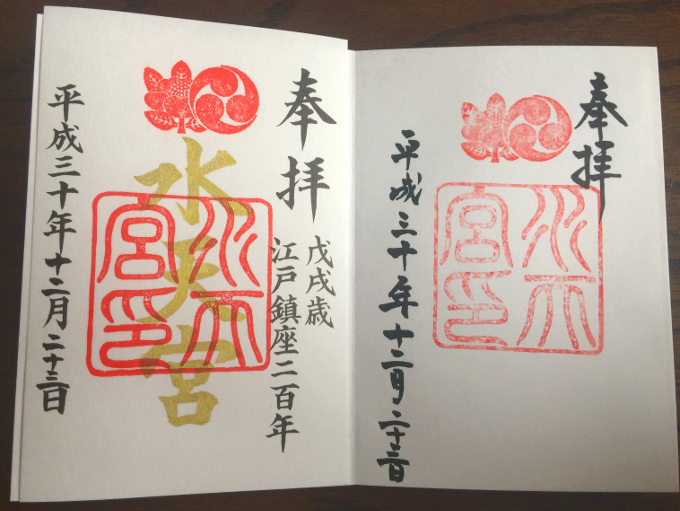 奉拝
平成三十年十二月二十三日
水天宮印
奉拝
戊戌歳
江戸鎮座二百年
水天宮
水天宮印
平成三十年十二月二十三日